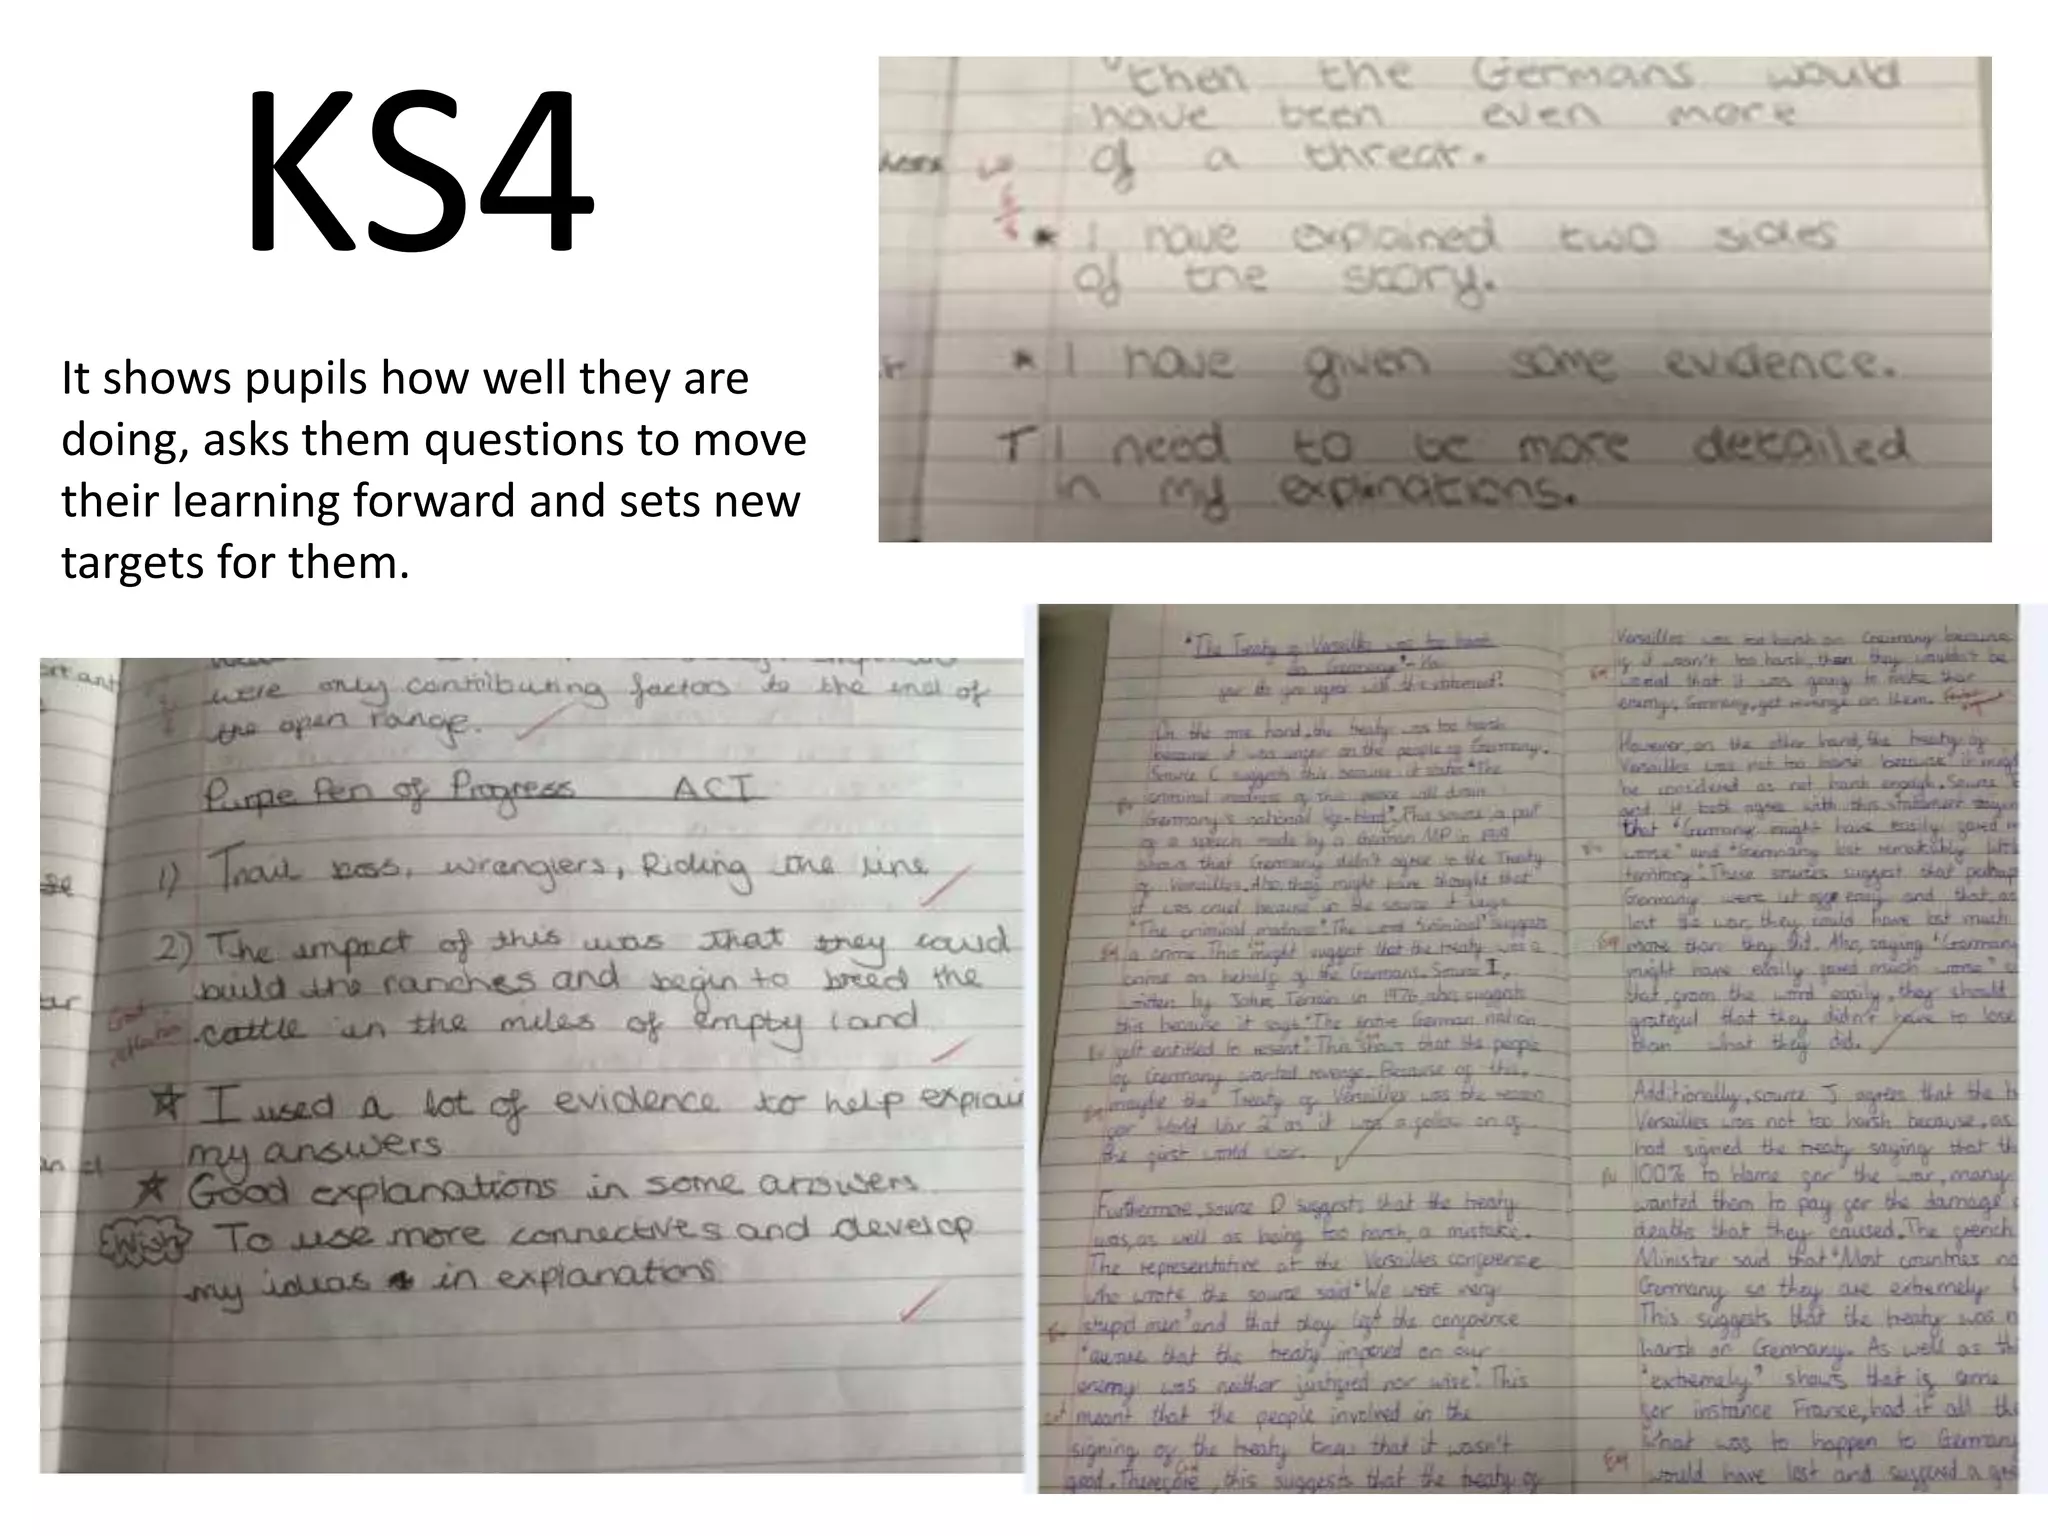 KS4
It shows pupils how well they are
doing, asks them questions to move
their learning forward and sets new
targets for them.
then the Germans would
have been even more
of a threat.
* I have explained two sides
of the story.
* I have given some evidence.
T I need to be more detailed
in my explinations.
were only contributing factors to the end of
the open range.
Purpe Pen of Progress ACT
1) Trail boss, wranglers, Riding the line
2) The impact of this was that they could
build the ranches and begin to breed the
cattle in the miles of empty land
I used a lot of evidence to help explain
my answers
Good explanations in some answers
Wish To use more connectives and develop
my ideas in explanations
"The Treaty of Versailles was too harsh
on Germany"-
far do you agree with this statement?
On the one hand, the treaty was too harsh
because it was unfair on the people of Germany.
Source C suggests this because it states "The
criminal madness of this peace will drain
Germany's national life-blood". This source, a part
of a speech made by a German MP in 1919
shows that Germany didn't agree to the Treaty
of Versailles. Also, they might have thought that
it was cruel because in the source it says
"The criminal madness". The word 'criminal' suggests
a crime. This might suggest that the treaty was a
crime on behalf of the Germans. Source I,
written by John Terrain in 1976, also suggests
this because it says "The entire German nation
felt entitled to resent". This shows that the people
of Germany wanted revenge. Because of this,
maybe the Treaty of Versailles was the reason
for World War 2 as it was a follow on of
the first world war.
Furthermore, source D suggests that the treaty
was, as well as being too harsh, a mistake.
The representative at the Versailles conference
who wrote the source said "We were very
stupid men" and that they left the conference
"aware that the treaty imposed on our
enemy was neither justified nor wise". This
meant that the people involved in the
signing of the treaty knew that it wasn't
good. Therefore, this suggests that the treaty of
Versailles was too harsh on Germany because
if it wasn't too harsh, then they wouldn't be
worried that it was going to make their
enemy, Germany, get revenge on them.
However, on the other hand, the treaty of
Versailles was not too harsh because it might
be considered as not harsh enough. Source
and H both agree with this statement saying
that "Germany might have easily fared
worse" and "Germany lost remarkably little
territory". These sources suggest that perhaps
Germany were let off easy and that as
lost the war, they could have lost much
more than they did. Also, saying "Germany
might have easily fared much worse"
that, from the word easily, they should
grateful that they didn't have to lose
than what they did.
Additionally, source J agrees that the
Versailles was not too harsh because, as
had signed the treaty saying that
100% to blame for the war, many
wanted them to pay for the damage
deaths that they caused. The French
Minister said that "Most countries
Germany so they are extremely
This suggests that the treaty was
harsh on Germany. As well as
"extremely" shows that if some
for instance France, had it all
what was to happen to Germany
would have lost and suffered a